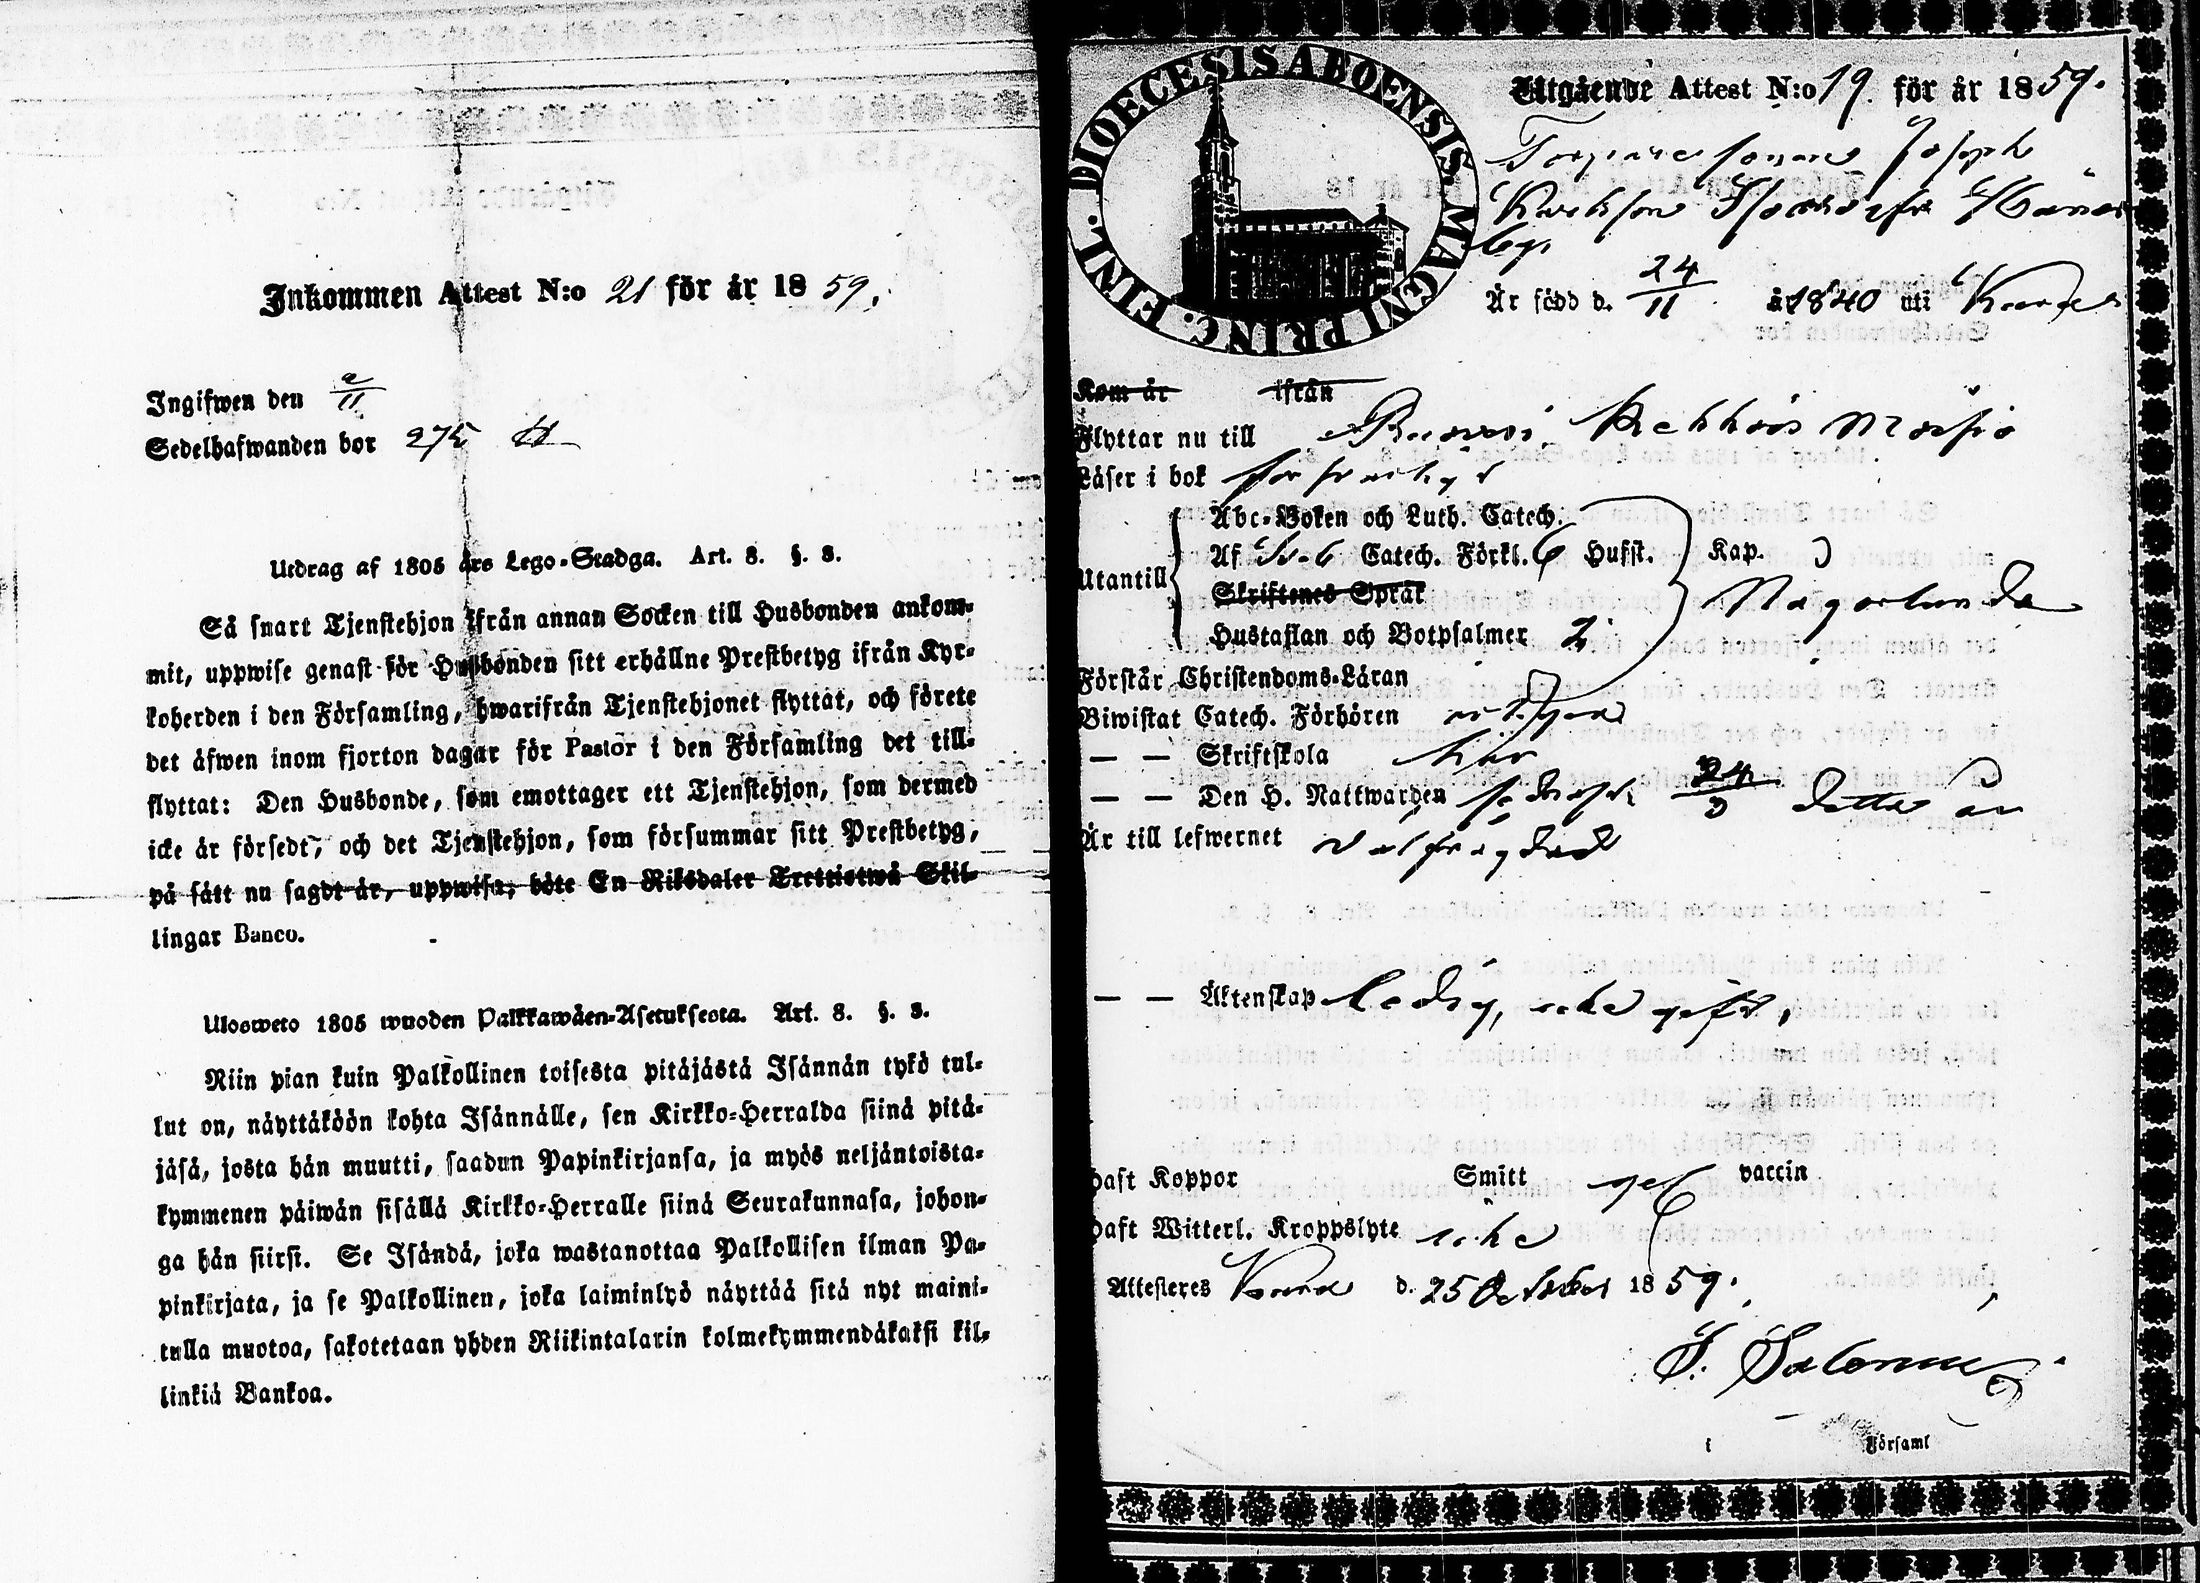 Inkommen Attest N:o 21 för år 1859.
Ingifwen den
Sedelhafwanden bor 275
Utdrag af 1805 års Lego-Stadga. Art. 8. §. 3.
Så snart Tjenstehjon ifrån annan Socken till Husbonden ankom-
mit, uppwise genast för Husbonden sitt erhållne Prestbetyg ifrån Kyr-
koherden i den Församling, hwarifrån Tjenstehjonet flyttat, och förete
det äfwen inom fjorton dagar för Pastor i den Församling det till-
flyttat: Den Husbonde, som emottager ett Tjenstehjon, som dermed
icke är försedt, och det Tjenstehjon, som försummar sitt Prestbetyg,
på sätt nu sagdt är, uppwisa, böte En Riksdaler Trettiotwå Skil-
lingar Banco.
Ulosweto 1805 wuoden Palkkawäen-Asetuksesta. Art. 8. §. 3.
Niin pian kuin Palkollinen toisesta pitäjästä Isännän tykö tul-
lut on, näyttäköön kohta Isännälle, sen Kirkko-Herralda siinä pitä-
jäsä, josta hän muutti, saadun Papinkirjansa, ja myös neljäntoista-
kymmenen päiwän sisällä Kirkko-Herralle siinä Seurakunnasa, johon-
ga hän siirsi. Se Isändä, joka wastanottaa Palkollisen ilman Pa-
pinkirjata, ja se Palkollinen, joka laiminlyö näyttää sitä nyt maini-
tulla muotoa, sakotetaan yhden Riikintalarin kolmekymmendäkaksi kil-
linkiä Bankoa.
FINL. DIOECESIS ABOENSIS. MAGNI PRINC.
Utgående Attest N:o 19. för år 1859.
Joseph
Är född d. 24/11 år 1840 uti
Kom år ifrån
Flyttar nu till
Läser i bok försvarligt
Utantill
Abc-Boken och Luth. Catech.
Af Catech. Förkl. 6 Hufst. Kap.
Skriftenes Språk
Hustaflan och Botpsalmer 2
Någorlunda
Förstår Christendoms-Läran
Biwistat Catech. Förhören
— — Skriftskola här
— — Den H. Nattwarden sednast 24 detta år
Är till lefwernet välfrägdad
— — Äktenskap ledig, icke gift,
Haft Koppor Smitt gel vaccin
Haft Witterl. Kroppslyte icke
Attesteres d. 25 October 1859.
i Församl